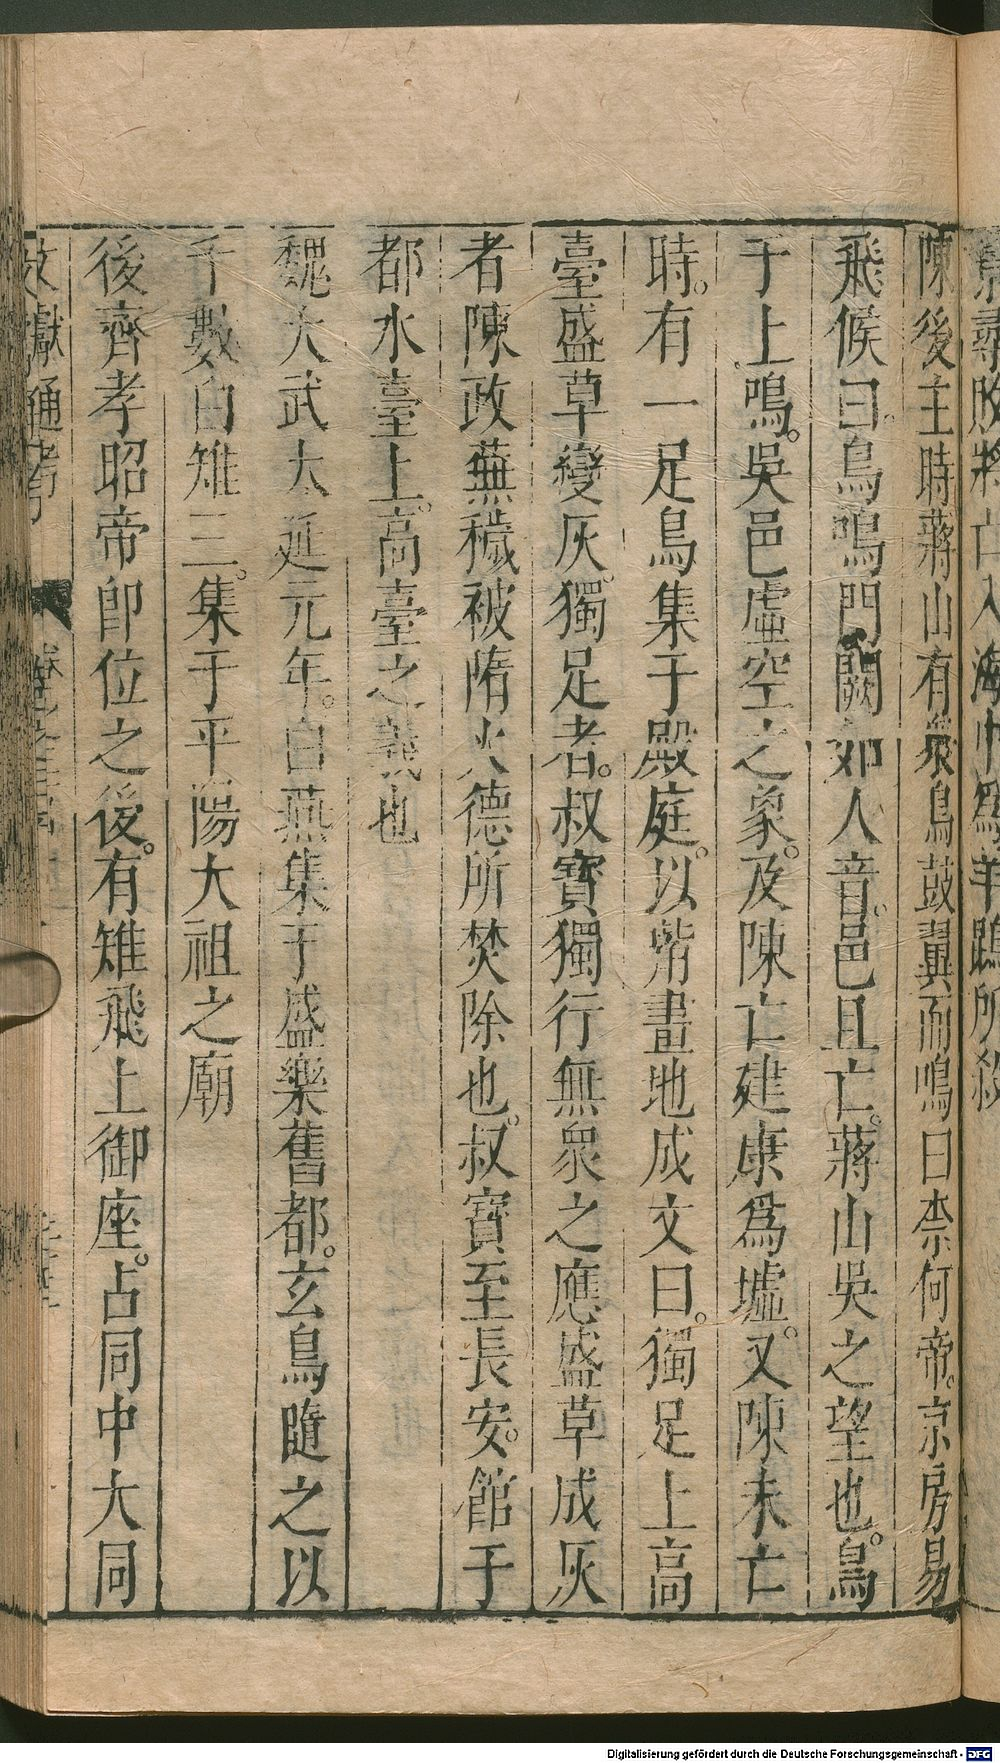 陳後主時蔣山有衆鳥鼓翼而鳴曰柰何帝。京房易
飛候曰。鳥鳴門闕如人音。邑且亡。蔣山吳之望也。鳥
于上鳴。吳邑虛空之象。及陳亡建康爲墟。又陳未亡
時。有一足鳥集于殿庭。以觜畫地成文曰。獨足上高
臺盛草變灰。獨足者。叔寶獨行無衆之應盛草成灰
者陳政蕪穢被隋火德所焚除也。叔寶至長安。館于
都水臺上。高臺之義也
魏大武太延元年。白燕集于盛樂舊都。玄鳥隨之以
千數白雉三。集于平陽大祖之廟
後齊孝昭帝卽位之後。有雉飛上御座。占同中大同
文獻通考
Digitalisierung gefördert durch die Deutsche Forschungsgemeinschaft - DFG